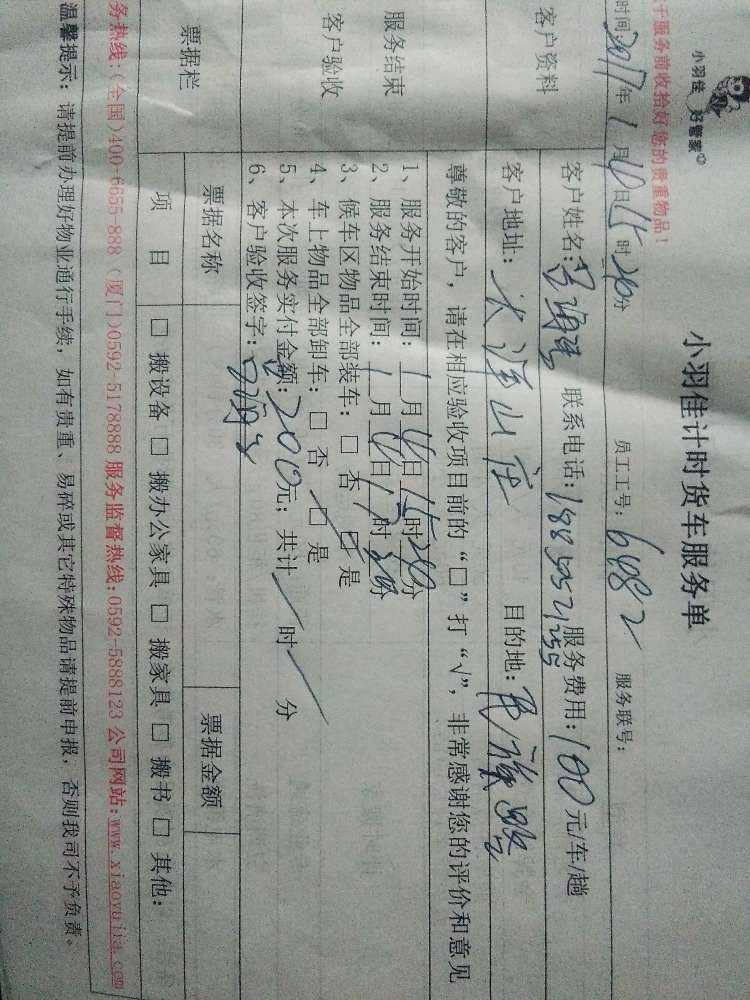 小羽佳 好管家
小羽佳计时货车服务单
于服务前收拾好您的贵重物品！
时间：2017年1月10日15时20分 员工工号：6482 服务联号：
客户资料
客户姓名： 联系电话： 服务费用：100元/车/趟
客户地址： 目的地：民族路
尊敬的客户，请在相应验收项目前的“□”打“√”，非常感谢您的评价和意见
服务结束
客户验收
1、服务开始时间：1月10日15时20分
2、服务结束时间：1月10日17时30分
3、候车区物品全部装车：□ 否 □ 是
4、车上物品全部卸车：□ 否 □ 是
5、本次服务实付金额：200元；共计 时 分
6、客户验收签字：
票据栏
票据名称 票据金额
项 目 □ 搬设备 □ 搬办公家具 □ 搬家具 □ 搬书 □ 其他：
务热线：(全国)400-6655-888 (厦门)0592-5178888 服务监督热线：0592-5888123 公司网站：www.xiaoyujia.com
温馨提示：请提前办理好物业通行手续，如有贵重、易碎或其它特殊物品请提前申报，否则我司不予负责。